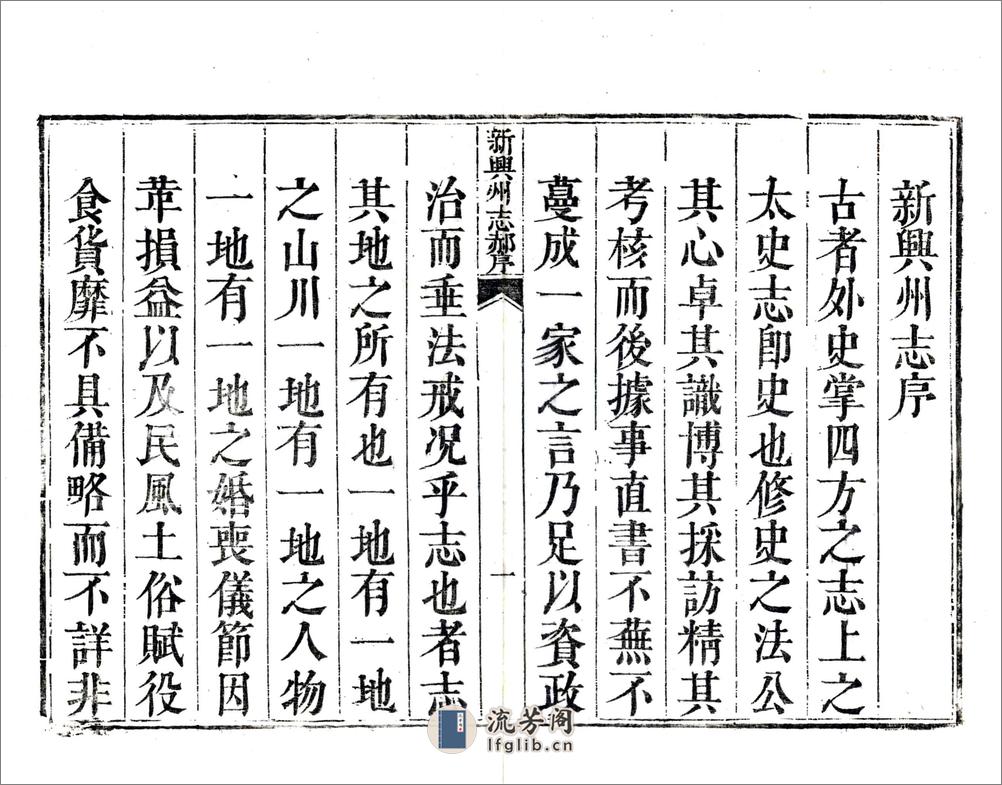 新興州志序
古者外史掌四方之志上之
太史志卽史也修史之法公
其心卓其識博其採訪精其
考核而後據事直書不蕪不
蔓成一家之言乃足以資政
新興州志郝序
一
治而垂法戒况乎志也者志
其地之所有也一地有一地
之山川一地有一地之人物
一地有一地之婚喪儀節因
革損益以及民風土俗賦役
食貨靡不具備略而不詳非
流芳阁
lfglib.cn